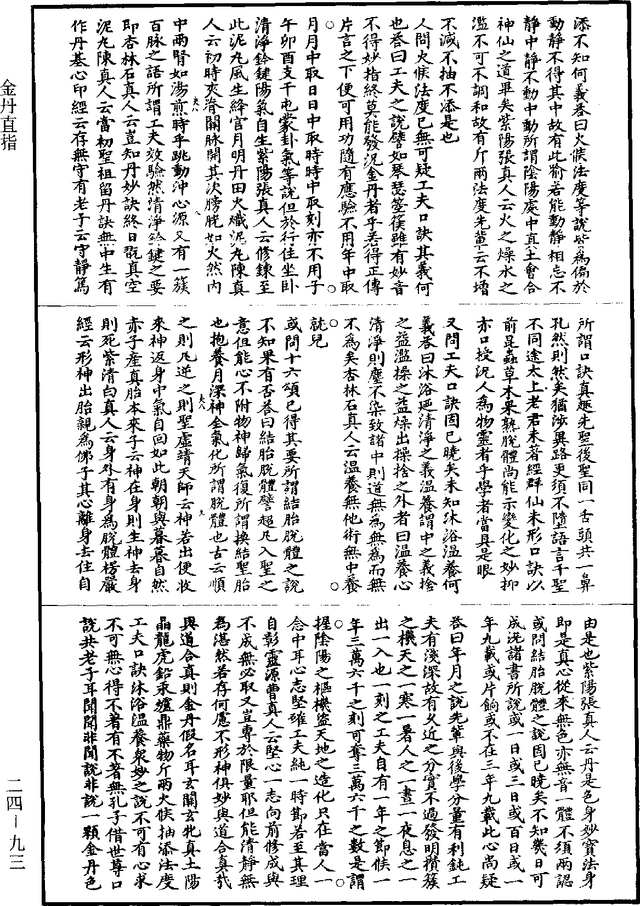 添不知何義荅曰火候法度等說皆為偏於
動靜不得其中故有此喻若能動靜相忘不
靜中靜不動中動所謂陰陽處中真土會合
神仙之道畢矣紫陽張真人云火之燥水之
濫不可不調和故有斤兩法度先輩云不增
不減不抽不添是也
人問火候法度已無可疑工夫口訣其義何
也荅曰工夫之說譬如琴瑟箜篌雖有妙音
不得妙指終莫能發況金丹者乎若得正傳
片言之下便可用功隨有應驗不用年中取
月月中取日日中取時時中取刻亦不用子
午卯酉支干屯蒙卦氣等說但於行住坐卧
清淨鈴鍵陽氣自生紫陽張真人云修鍊至
此泥丸風生絳宮月明丹田火熾泥丸陳真
人云初時夾脊關脉開其次膀胱如火然內
中兩腎如湯煎時乎跳動沖心源又有一簇
百脉之語所謂工夫效驗然清淨鈴鍵之要
即杏林石真人云豈知丹妙訣終日翫真空
泥丸陳真人云當初聖祖留丹訣無中生有
作丹基心印經云存無守有老子云守靜篤
所謂口訣真趣先聖後聖同一舌頭共一鼻
孔然則然矣猶涉異路更須不隨語言千聖
不同途太上老君未著經群仙未形口訣以
前昆蟲草木果孰脫體尚能示變化之妙抑
亦口授況人為物靈者乎學者當具是眼
又問工夫口訣固已曉矣未知沐浴溫養何
義荅曰沐浴迺清淨之義溫養謂中之義捨
之益濫操之益燥出操捨之外者曰溫養心
清淨則塵不染致諸中則道無為無為而無
不為矣杏林石真人云溫養無他術無中養
就兒
或問十六頌已得其要所謂結胎脫體之說
不知果有否荅曰結胎脫體譬超凡入聖之
意但能心不附物神歸氣復所謂換結聖胎
也抱養月深神全氣化所謂脫體也古云順
之則凡逆之則聖虛靖天師云神若出便收
來神返身中氣自回如此朝朝與暮暮自然
赤子產真胎本來子云神在身則生神去身
則死紫清白真人云身外有身為脫體楞嚴
經云形神出胎親為佛子其心離身去住自
由是也紫陽張真人云丹是色身妙寶法身
即是真心從來無色亦無音一體不須兩認
或問結胎脫體之說固已曉矣不知幾日可
成況諸書所說或一日或三日或百日或一
年九載或片餉或不在三年九載此心尚疑
荅曰年月之說先輩與後學分量有利鈍工
夫有淺深故有久近之分實不過發明攢簇
之機天之一寒一暑人之一晝一夜息之一
出一入也一刻之工夫自有一年之節候一
年三萬六千之刻可奪三萬六千之數是謂
握陰陽之樞機盜天地之造化只在當人一
念中耳心志堅確工夫純一時節若至其理
自彰靈源曹真人云堅心一志向前修成與
不成無必取又豈專於限量耶但能清靜無
為湛然若存何慮不形神俱妙與道合真哉
與道合真則金丹假名耳玄關玄牝真土陽
晶龍虎鉛汞爐鼎藥物斤兩火候抽添法度
工夫口訣沐浴溫養衆妙之說不可有心求
不可無心得不著有不著無孔子借世尊口
說共老子耳聞聞非聞說非說一顆金丹色
金丹直指
二四－九三